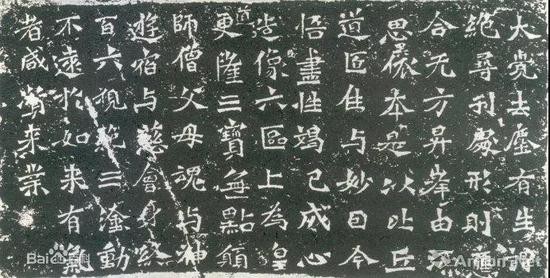 大覺去塵有生谓
絕尋刊處形則
合无方昇峯由
思儂本是以比丘
道匠住与妙因今
悟盡性竭己成心
造像六區上為皇
道更隆三寶無點願
師僧父母魂与神
遊宿与慈會身終
百六視絕三塗動
不遠於如來有氣
者咸資來業
Bai百科
Artron.net